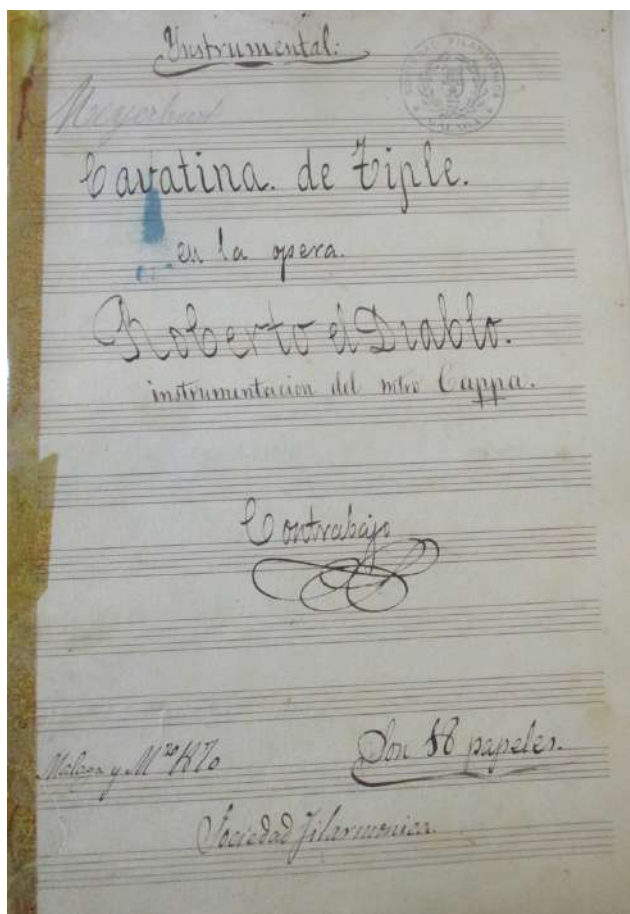 Instrumental:
SOCIEDAD FILARMONICA
MALAGA
Cavatina. de Tiple.
en la opera.
Roberto el Diablo.
instrumentacion del mtro Cappa.
Contrabajo
Malaga y Mzo 1870
Son 18 papeles.
Sociedad Filarmonica.